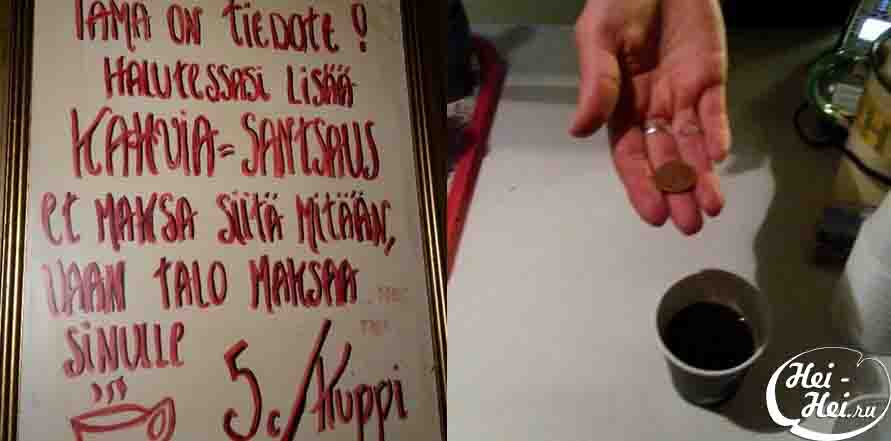 TÄMÄ ON TIEDOTE!
HALUTESSASI LISÄÄ
KAHVIA = SANTSAUS
ET MAKSA SIITÄ MITÄÄN,
VAAN TALO MAKSAA
SINULLE
5c/KUPPI
Hei-
Hei.ru